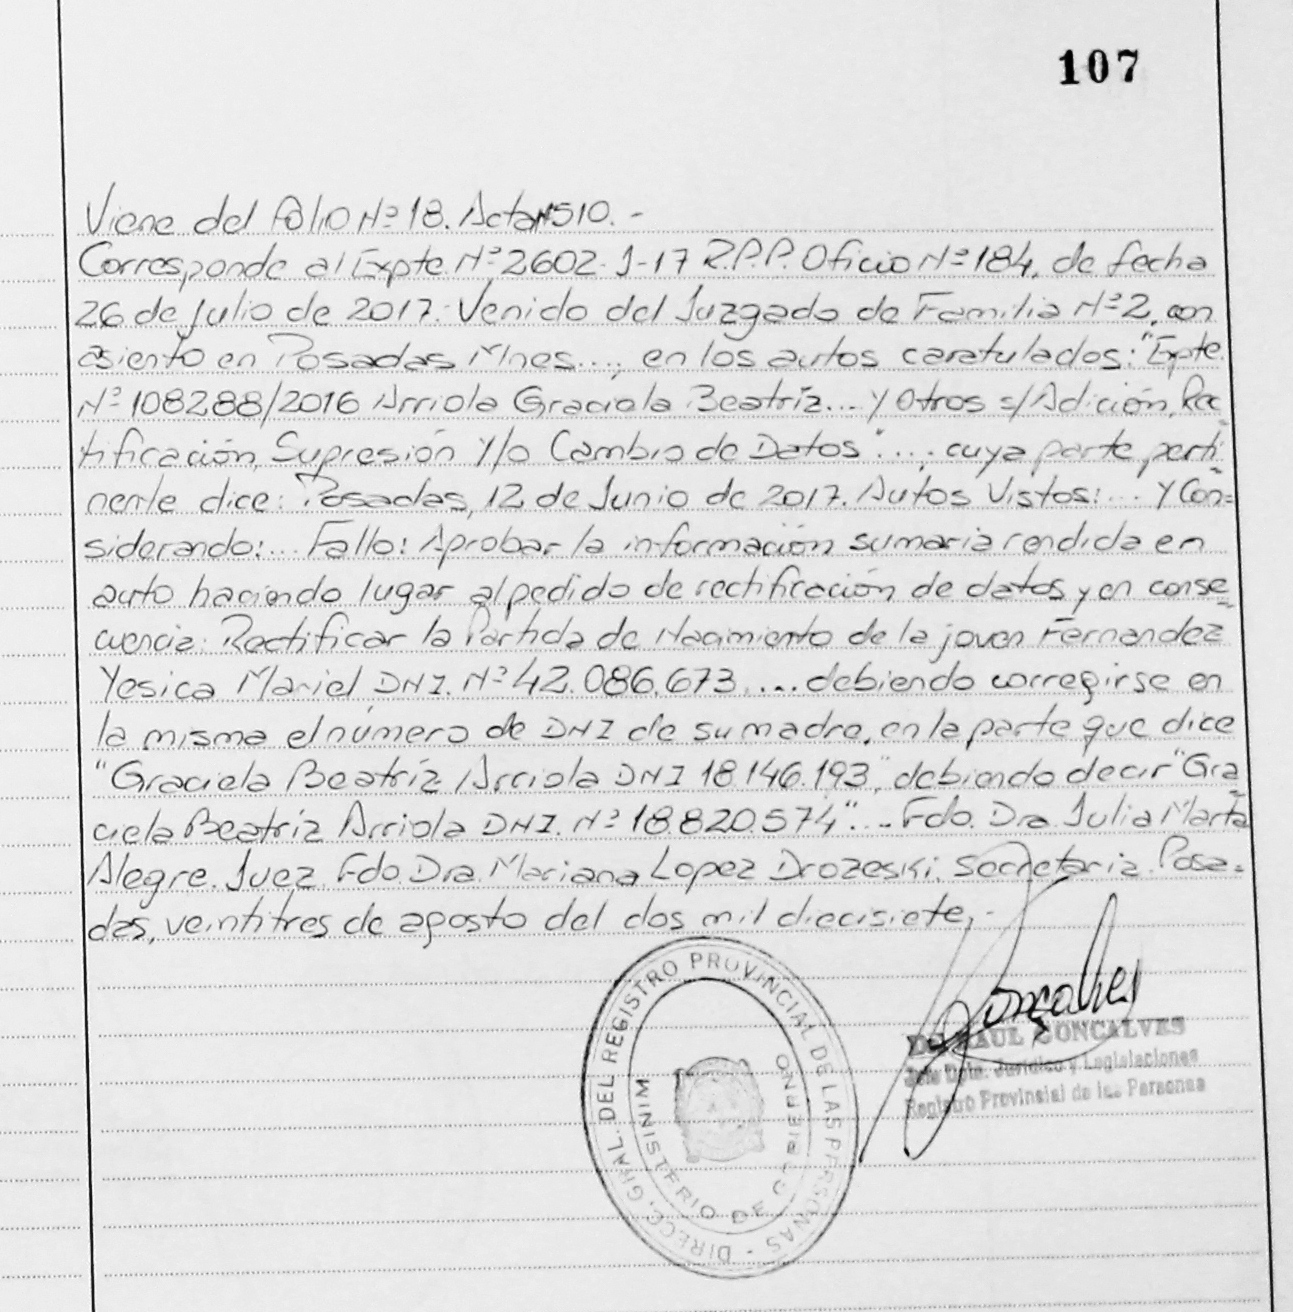 107
Viene del Folio Nº 18. Acta Nº 510.-
Corresponde al Expte. Nº 2602-J-17 R.P.P. Oficio Nº 184, de fecha
26 de Julio de 2017. Venido del Juzgado de Familia Nº 2, con
asiento en Posadas Mnes...; en los autos caratulados: "Expte.
Nº 108288/2016 Arriola Graciela Beatríz... y Otros s/Adición, Rec
tificación, Supresión Y/o Cambio de Datos"...; cuya parte perti-
nente dice: Posadas, 12 de Junio de 2017. Autos Vistos:... Y Con=
siderando:... Fallo: Aprobar la información sumaria rendida en
auto haciendo lugar al pedido de rectificación de datos y en conse
cuencia: Rectificar la Partida de Nacimiento de la joven Fernandez
Yesica Mariel, DNI. Nº 42.086.673.... debiendo corregirse en
la misma el número de DNI de su madre, en la parte que dice
"Graciela Beatríz Arriola DNI 18.146.193", debiendo decir "Gra
ciela Beatríz Arriola DNI. Nº 18.820.574"... Fdo. Dra. Julia Marta
Alegre. Juez. Fdo. Dra. Mariana Lopez Drozeski. Secretaria. Posa=
das, veintitres de agosto del dos mil diecisiete.-
DIRECC. GRAL. DEL REGISTRO PROVINCIAL DE LAS PERSONAS -
MINISTERIO DE GOBIERNO
Gonçalves
Dr. RAUL GONCALVES
Jefe Dpto. Jurídico y Legislaciones
Registro Provincial de las Personas